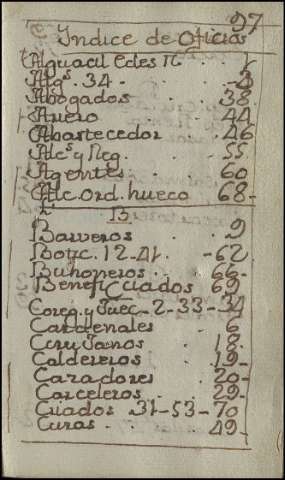 97
Indice de Oficios
Alguacil Ecles 1
Alg.s 34 - 3
Abogados 38
Avero 44
Abastecedor 46
Alc.s y Reg. 55
Agentes 60
Alc. Ord. hueco 68-
B
Barveros 9
Botic. 12-41. -62
Buhoneros 66-
Beneficiados 69
Coreg. y Juec 2-33-34
Cardenales 6
Cirujanos 18.
Caldereros 19-
Cazadores 20-
Carceleros 29-
Criados 31-53-70
Curas 49-